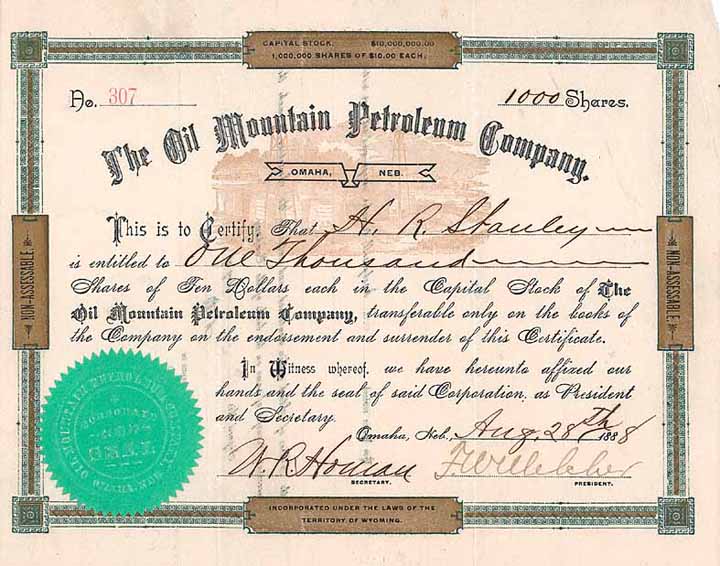 CAPITAL STOCK. $10,000,000.00
1,000,000 SHARES OF $10.00 EACH.
No. 307
1000 Shares.
The Oil Mountain Petroleum Company.
OMAHA, NEB.
This is to Certify, That H. R. Stanley
is entitled to One Thousand
Shares of Ten Dollars each in the Capital Stock of The
Oil Mountain Petroleum Company, transferable only on the books of
the Company on the endorsement and surrender of this Certificate.
In Witness whereof, we have hereunto affixed our
hands and the seal of said Corporation, as President
and Secretary
Omaha, Neb., Aug. 28th 1888
W. R. Homan
SECRETARY.
PRESIDENT.
NON-ASSESSABLE.
NON-ASSESSABLE.
INCORPORATED UNDER THE LAWS OF THE
TERRITORY OF WYOMING.